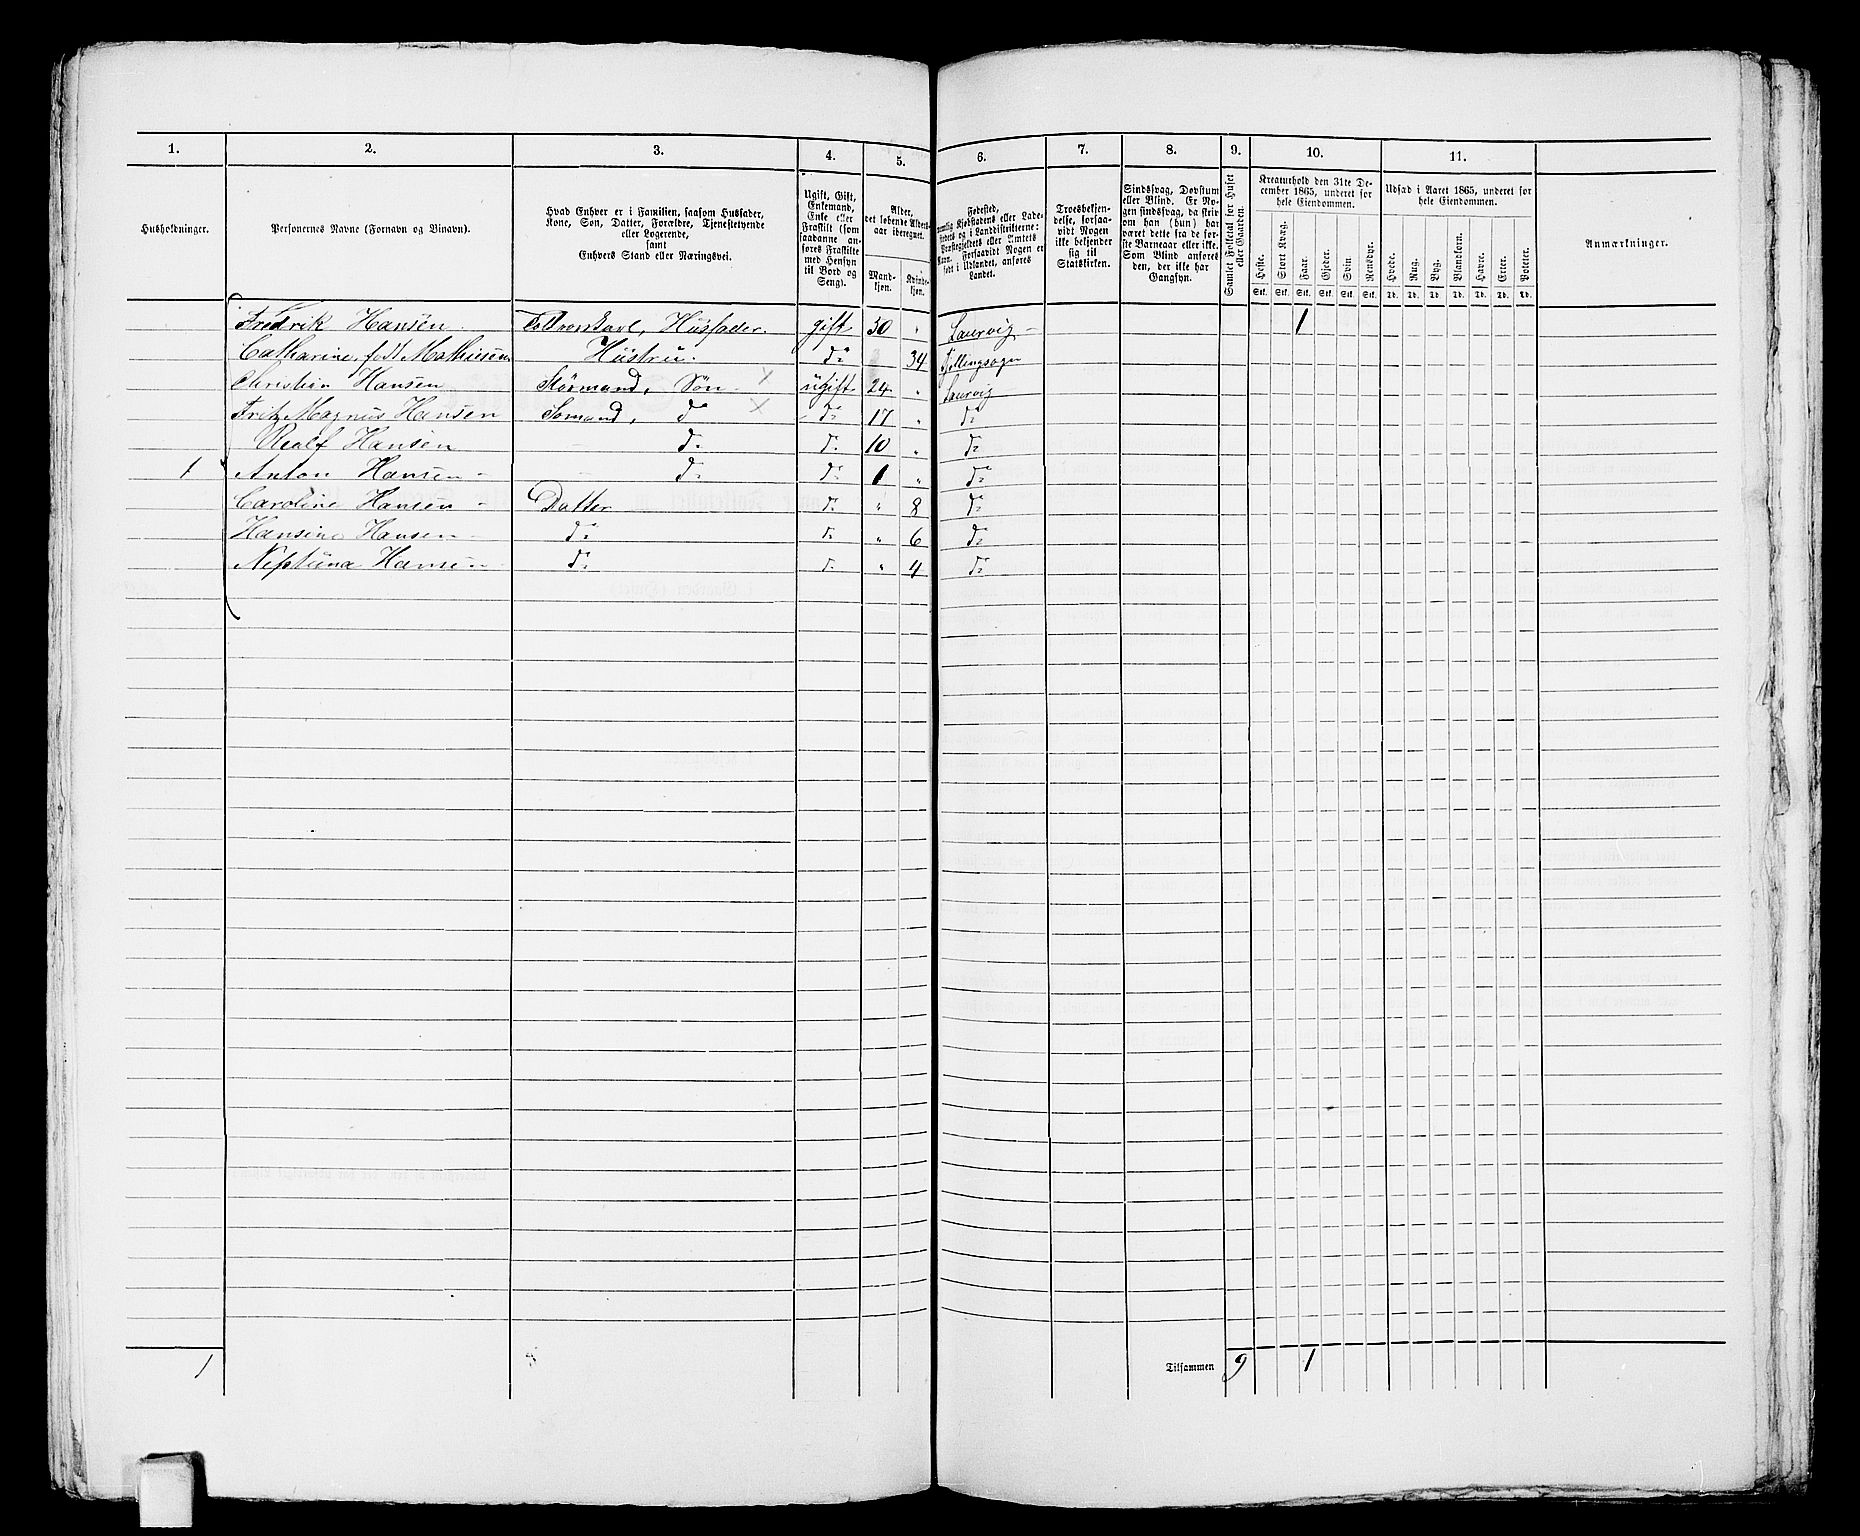 1. 2. 3. 4. 5. 6. 7. 8. 9. 10. 11.
Husholdninger.
Personernes Navne (Fornavn og Vinavn).
Hvad Enhver er i Familien, saasom Husfader,
Kone, Søn, Datter, Forældre, Tjenestetyende
eller Logerende,
samt
Enhvers Stand eller Næringsvei.
Ugift, Gift,
Enkemand,
Enke eller
Fraskilt (som
saadanne an-
føres Fraskilte
med Hensyn
til Bord og
Seng).
Alder,
det løbende Alders-
aar iberegnet.
Mand-
kjøn.
Kvinde-
kjøn.
Fødested,
nemlig Kjøbstadens eller Lade-
stedets og i Landdistrikterne:
Præstegjeldets eller Amtets
Navn. Forsaavidt Nogen er
født i Udlandet, anføres
Landet.
Troesbekjen-
delse, forsaa-
vidt Nogen
ikke bekjender
sig til
Statskirken.
Sindssvag, Døvstum
eller Blind. Er No-
gen sindssvag, da skriv
om han (hun) har
været dette fra de før-
ste Barneaar eller ikke.
Som Blind anføres
den, der ikke har
Gangsyn.
Samlet Folketal for Huset
eller Gaarden.
Kreaturhold den 31te De-
cember 1865, underet for
hele Eiendommen.
Heste. Stort Kvæg. Faar. Gjeder. Svin. Rensdyr.
Stk. Stk. Stk. Stk. Stk. Stk.
Udsæd i Aaret 1865, underet for
hele Eiendommen.
Hvede. Rug. Byg. Blandkorn. Havre. Erter. Poteter.
Td. Td. Td. Td. Td. Td. Td.
Anmærkninger.
Fredrik Hansen Husfader. gift 50 " Laurvig 1
Catharine, født Mathiesen Hustru d° 34 Tjøllingsogn
Christian Hansen Styrmand, Søn ugift 24 " Laurvig
Fritz Magnus Hansen Sømand, d° d° 17 " d°
Realf Hansen d° d° 10 " d°
1 Anton Hansen d° d° 1 " d°
Caroline Hansen Datter d° " 8 d°
Hansine Hansen d° d° " 6 d°
Neptuna Hansen d° d° " 4 d°
1 Tilsammen 9 1